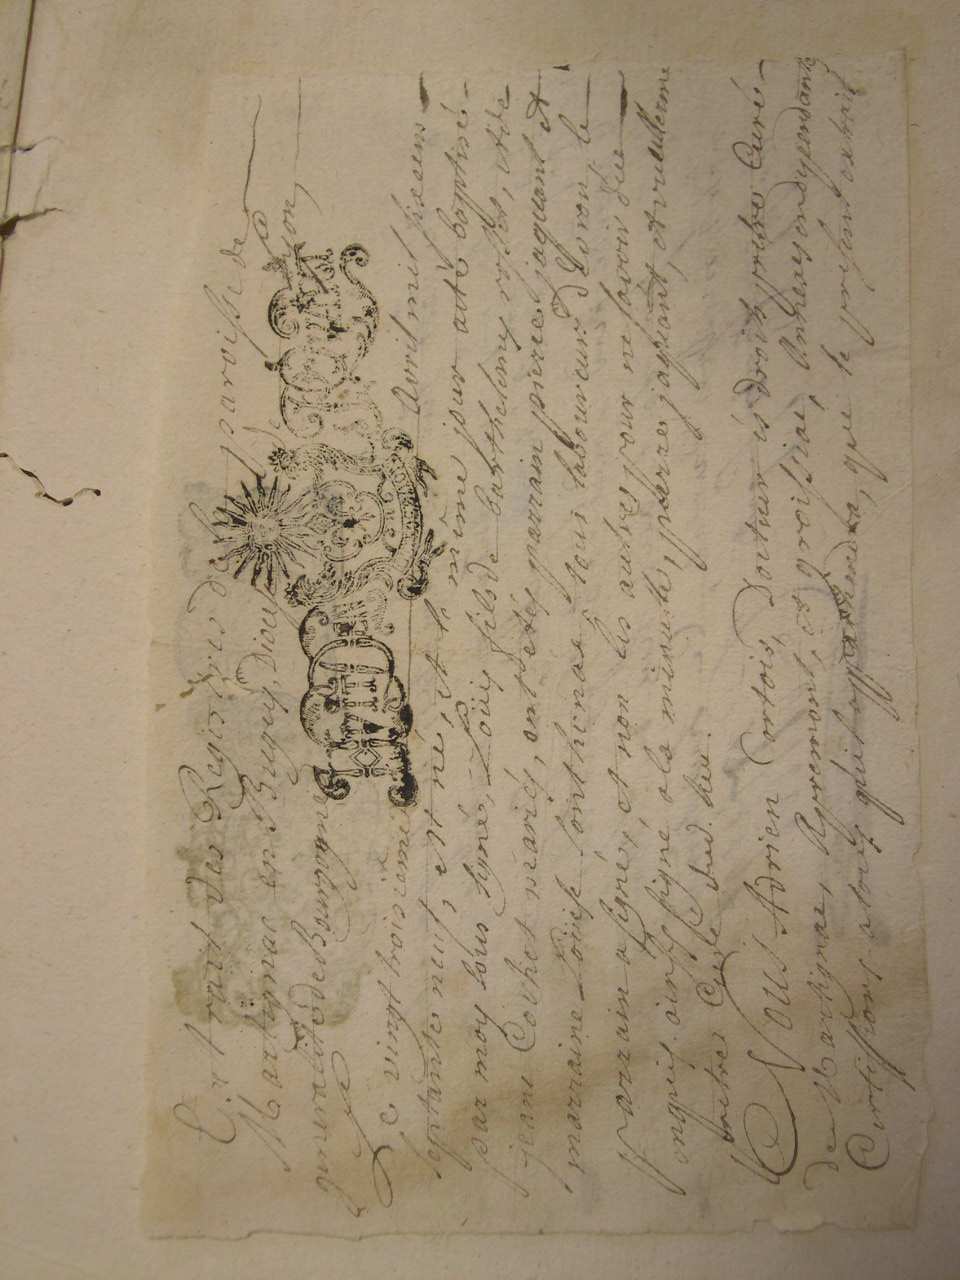 Extrait des Registres de la paroisse de
Martignac en Bugey, Diocese de Lyon,
generalité de Bourgogne
Le vingt troisième Avril mil six cens
septante neuf, est né, et le même jour a été baptisé
par moy sous signé, Loüis fils de barthelemy et de
jeane Cochet mariés, ont étés parrain pierre jaquant et
marraine Loüise tous laboureurs de le
parrain a signé, et non les autres pour ne sçavoir due
enquis, ainsi signé a la minute, pierre jaquant, et vuillerme
pretre Curé dud. lieu.
Nous Adrien Cortois, Docteur és droits, prêtre Curé
de Martignac, Apremont, et groissiac, Annexes en dependants
Certiffions, a tous qu'il appartiendra, que le present extrait